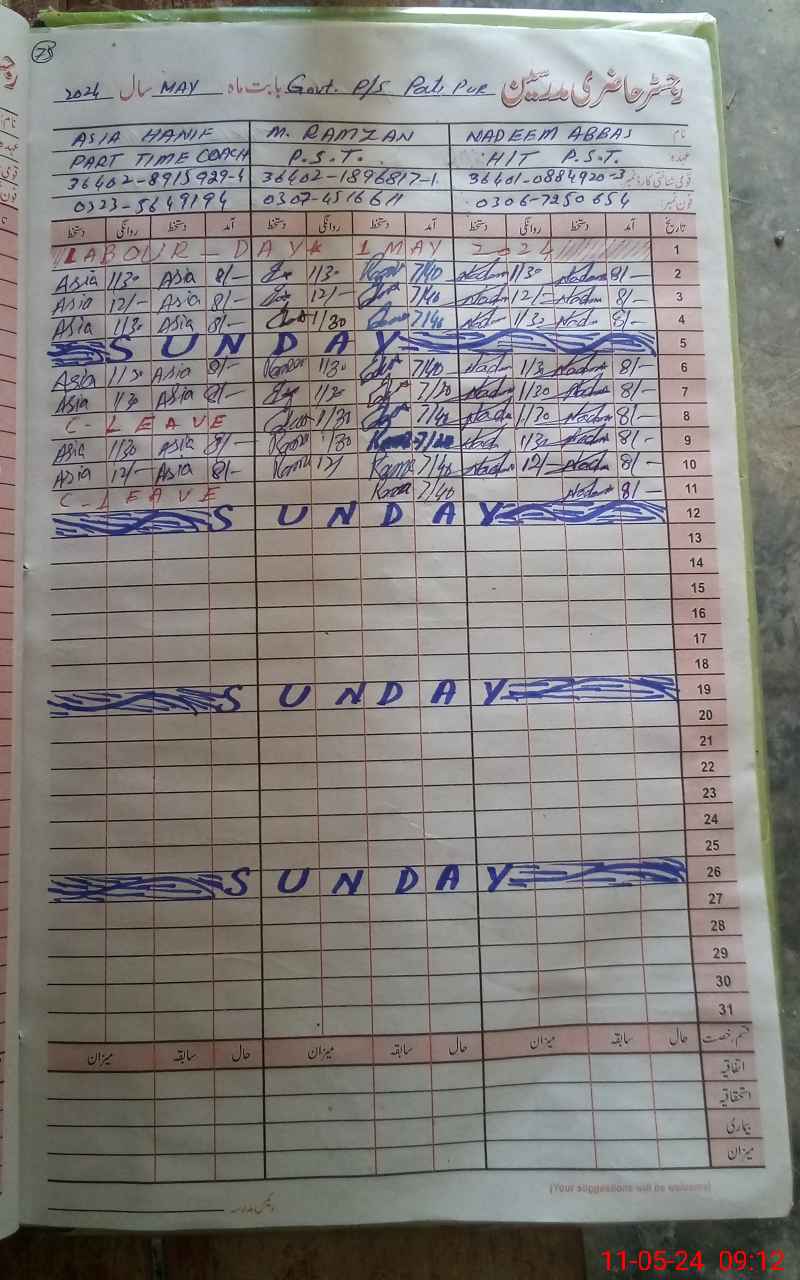 75
رجسٹر حاضری مدرسین Govt. P/S Pati Pur بابت ماہ MAY سال 2024
نام NADEEM ABBAS M. RAMZAN ASIA HANIF
عہدہ H/T P.S.T. P.S.T. PART TIME COACH
قومی شناختی کارڈ نمبر 36401-0884920-3 36402-1896817-1 36402-8915929-4
فون نمبر 0306-7250654 0307-4516611 0323-5649194
تاریخ آمد دستخط روانگی دستخط آمد دستخط روانگی دستخط آمد دستخط روانگی دستخط
1 LABOUR - DAY * 1 MAY 2024
2 8/- Nadeem 1/30 Nadeem 7/40 1/30 8/- Asia 1/30 Asia
3 8/- Nadeem 12/- Nadeem 7/40 12/- 8/- Asia 12/- Asia
4 8/- 1/30 7/40 1/30 8/- Asia 1/30 Asia
5 SUNDAY
6 8/- 1/30 7/40 1/30 8/- Asia 1/30 Asia
7 8/- 1/30 7/30 1/30 8/- Asia 1/30 Asia
8 8/- 1/30 7/40 1/30 C-LEAVE
9 8/- 1/30 1/30 8/- Asia 1/30 Asia
10 8/- 12/- 7/40 12/ 8/- Asia 12/- Asia
11 8/- 7/40 C-LEAVE
12 SUNDAY
13
14
15
16
17
18
19 SUNDAY
20
21
22
23
24
25
26 SUNDAY
27
28
29
30
31
قسم رخصت حال سابقہ میزان حال سابقہ میزان حال سابقہ میزان
اتفاقیہ
استحقاقیہ
بیماری
میزان
(Your suggestions will be welcome)
رئیس مدرسہ
11-05-24 09:12